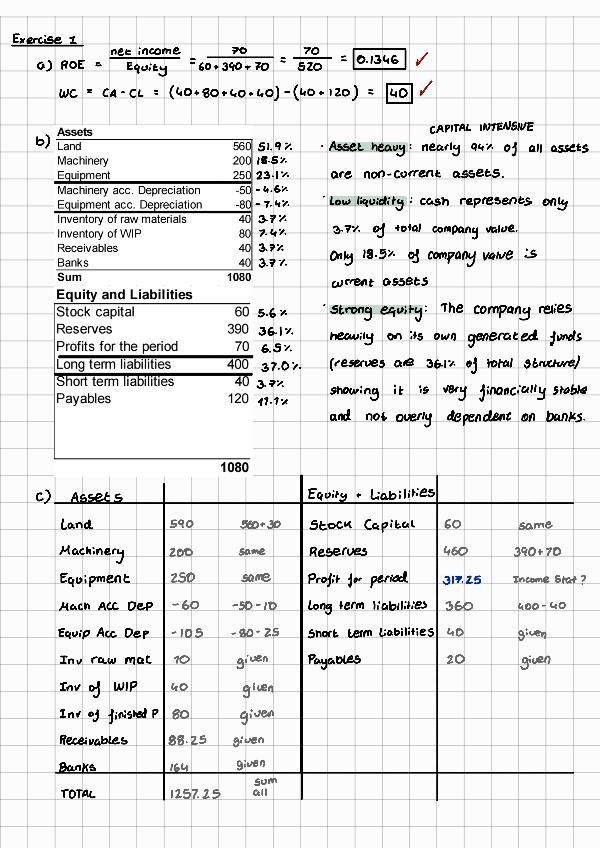 Exercise 1
a) ROE = net income / Equity = 70 / 60+390+70 = 70 / 520 = 0.1346 ✓
WC = CA - CL = (40+80+40+40)-(40+120) = 40 ✓
b) Assets
Land 560 51.9%
Machinery 200 18.5%
Equipment 250 23.1%
Machinery acc. Depreciation -50 -4.6%
Equipment acc. Depreciation -80 -7.4%
Inventory of raw materials 40 3.7%
Inventory of WIP 80 7.4%
Receivables 40 3.7%
Banks 40 3.7%
Sum 1080
Equity and Liabilities
Stock capital 60 5.6%
Reserves 390 36.1%
Profits for the period 70 6.5%
Long term liabilities 400 37.0%
Short term liabilities 40 3.7%
Payables 120 11.1%
1080
CAPITAL INTENSIVE
· Asset heavy: nearly 94% of all assets
are non-current assets.
· Low liquidity: cash represents only
3.7% of total company value.
Only 18.5% of company value is
current assets
· Strong equity: The company relies
heavily on its own generated funds
(reserves are 36.1% of total structure)
showing it is very financially stable
and not overly dependent on banks.
c) Assets Equity + Liabilities
Land 590 560+30 Stock Capital 60 same
Machinery 200 same Reserves 460 390+70
Equipment 250 same Profit for period 317.25 Income Stat?
Mach ACC Dep -60 -50-10 Long term liabilities 360 400-40
Equip Acc Dep -105 -80-25 Short term liabilities 40 given
Inv raw mat 10 given Payables 20 given
Inv of WIP 40 given
Inv of finished P 80 given
Receivables 88.25 given
Banks 164 given
TOTAL 1257.25 sum all